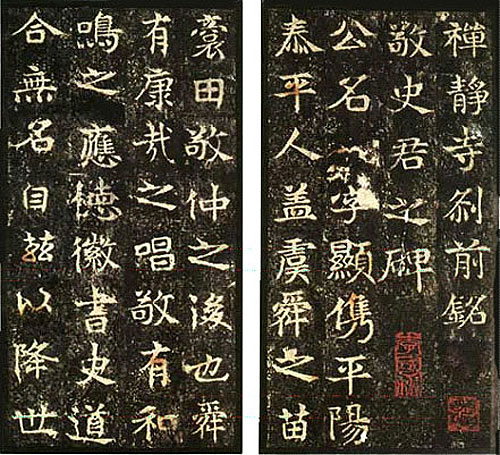 禪靜寺刹前銘
敬史君之碑
公名字顯儁平陽
泰平人盖虞舜之苗
裔田敬仲之後也舜
有康哉之唱敬有和
鳴之應德徽書史道
合無名自兹以降世